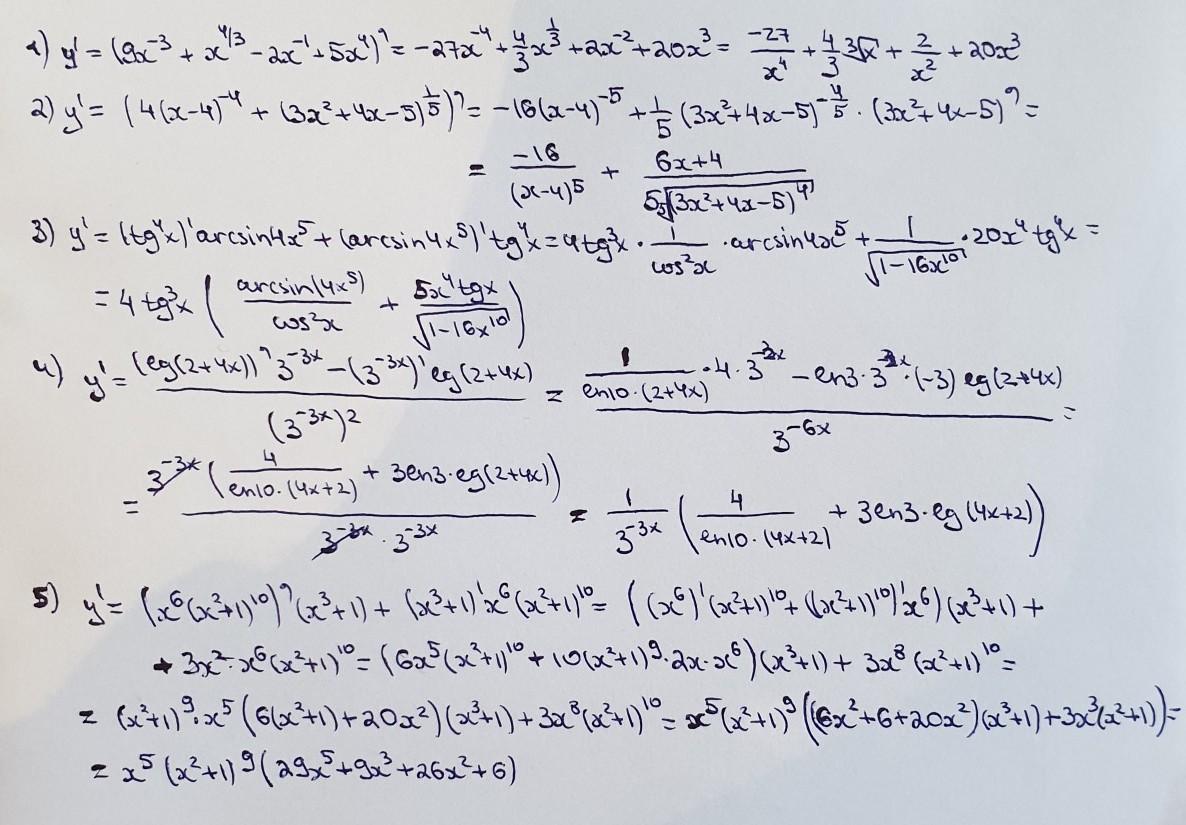 1) y' = (9x⁻³ + x^{4/3} - 2x⁻¹ + 5x⁴)' = -27x⁻⁴ + 4/3 x^{1/3} + 2x⁻² + 20x³ = -27/x⁴ + 4/3 ∛x + 2/x² + 20x³
2) y' = (4(x-4)⁻⁴ + (3x²+4x-5)^{1/5})' = -16(x-4)⁻⁵ + 1/5 (3x²+4x-5)^{-4/5} · (3x²+4x-5)' =
= -16/(x-4)⁵ + (6x+4)/(5 ⁵√((3x²+4x-5)⁴))
3) y' = (tg⁴x)' arcsin4x⁵ + (arcsin4x⁵)' tg⁴x = 4tg³x · 1/cos²x · arcsin4x⁵ + 1/√(1-16x¹⁰) · 20x⁴ tg⁴x =
= 4tg³x ( arcsin(4x⁵)/cos²x + 5x⁴tgx/√(1-16x¹⁰) )
4) y' = ((lg(2+4x))' 3^{-3x} - (3^{-3x})' lg(2+4x))/(3^{-3x})² = (1/(ln10·(2+4x)) · 4 · 3^{-3x} - ln3 · 3^{-3x} · (-3) lg(2+4x))/3^{-6x} =
= (3^{-3x} (4/(ln10·(4x+2)) + 3ln3·lg(2+4x)))/(3^{-3x} · 3^{-3x}) = 1/3^{-3x} (4/(ln10·(4x+2)) + 3ln3·lg(4x+2))
5) y' = (x⁶(x²+1)¹⁰)' (x³+1) + (x³+1)' x⁶(x²+1)¹⁰ = ((x⁶)' (x²+1)¹⁰ + ((x²+1)¹⁰)' x⁶) (x³+1) +
+ 3x² · x⁶(x²+1)¹⁰ = (6x⁵(x²+1)¹⁰ + 10(x²+1)⁹ · 2x · x⁶) (x³+1) + 3x⁸ (x²+1)¹⁰ =
= (x²+1)⁹ · x⁵ (6(x²+1) + 20x²) (x³+1) + 3x⁸(x²+1)¹⁰ = x⁵(x²+1)⁹ ((6x²+6+20x²)(x³+1) + 3x³(x²+1)) =
= x⁵ (x²+1)⁹ (29x⁵ + 9x³ + 26x² + 6)